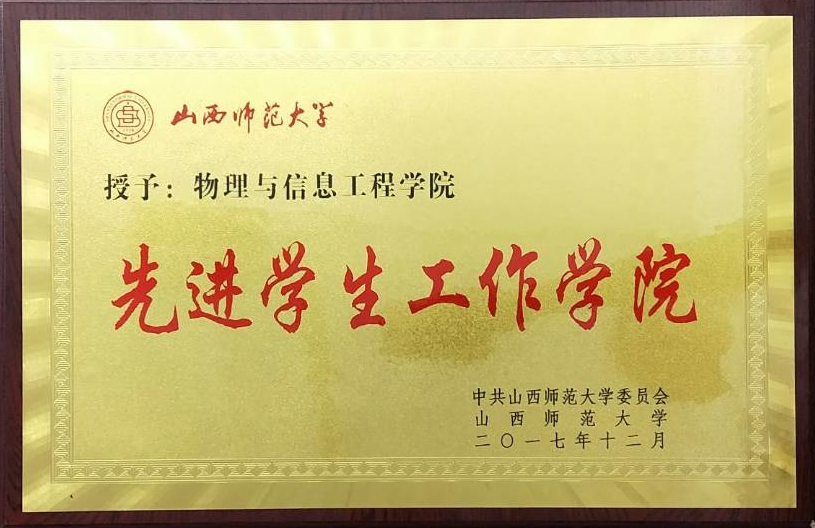 山西师范大学
授予：物理与信息工程学院
先进学生工作学院
中共山西师范大学委员会
山西师范大学
二〇一七年十二月